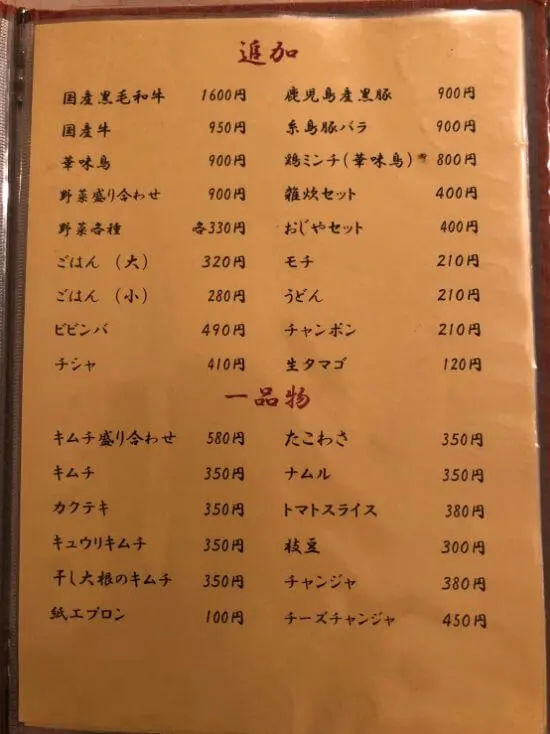 追加
国産黒毛和牛 1600円 鹿児島産黒豚 900円
国産牛 950円 糸島豚バラ 900円
華味鳥 900円 鶏ミンチ(華味鳥) 800円
野菜盛り合わせ 900円 雑炊セット 400円
野菜各種 各330円 おじやセット 400円
ごはん (大) 320円 モチ 210円
ごはん (小) 280円 うどん 210円
ビビンバ 490円 チャンポン 210円
チシャ 410円 生タマゴ 120円
一品物
キムチ盛り合わせ 580円 たこわさ 350円
キムチ 350円 ナムル 350円
カクテキ 350円 トマトスライス 380円
キュウリキムチ 350円 枝豆 300円
干し大根のキムチ 350円 チャンジャ 380円
紙エプロン 100円 チーズチャンジャ 450円